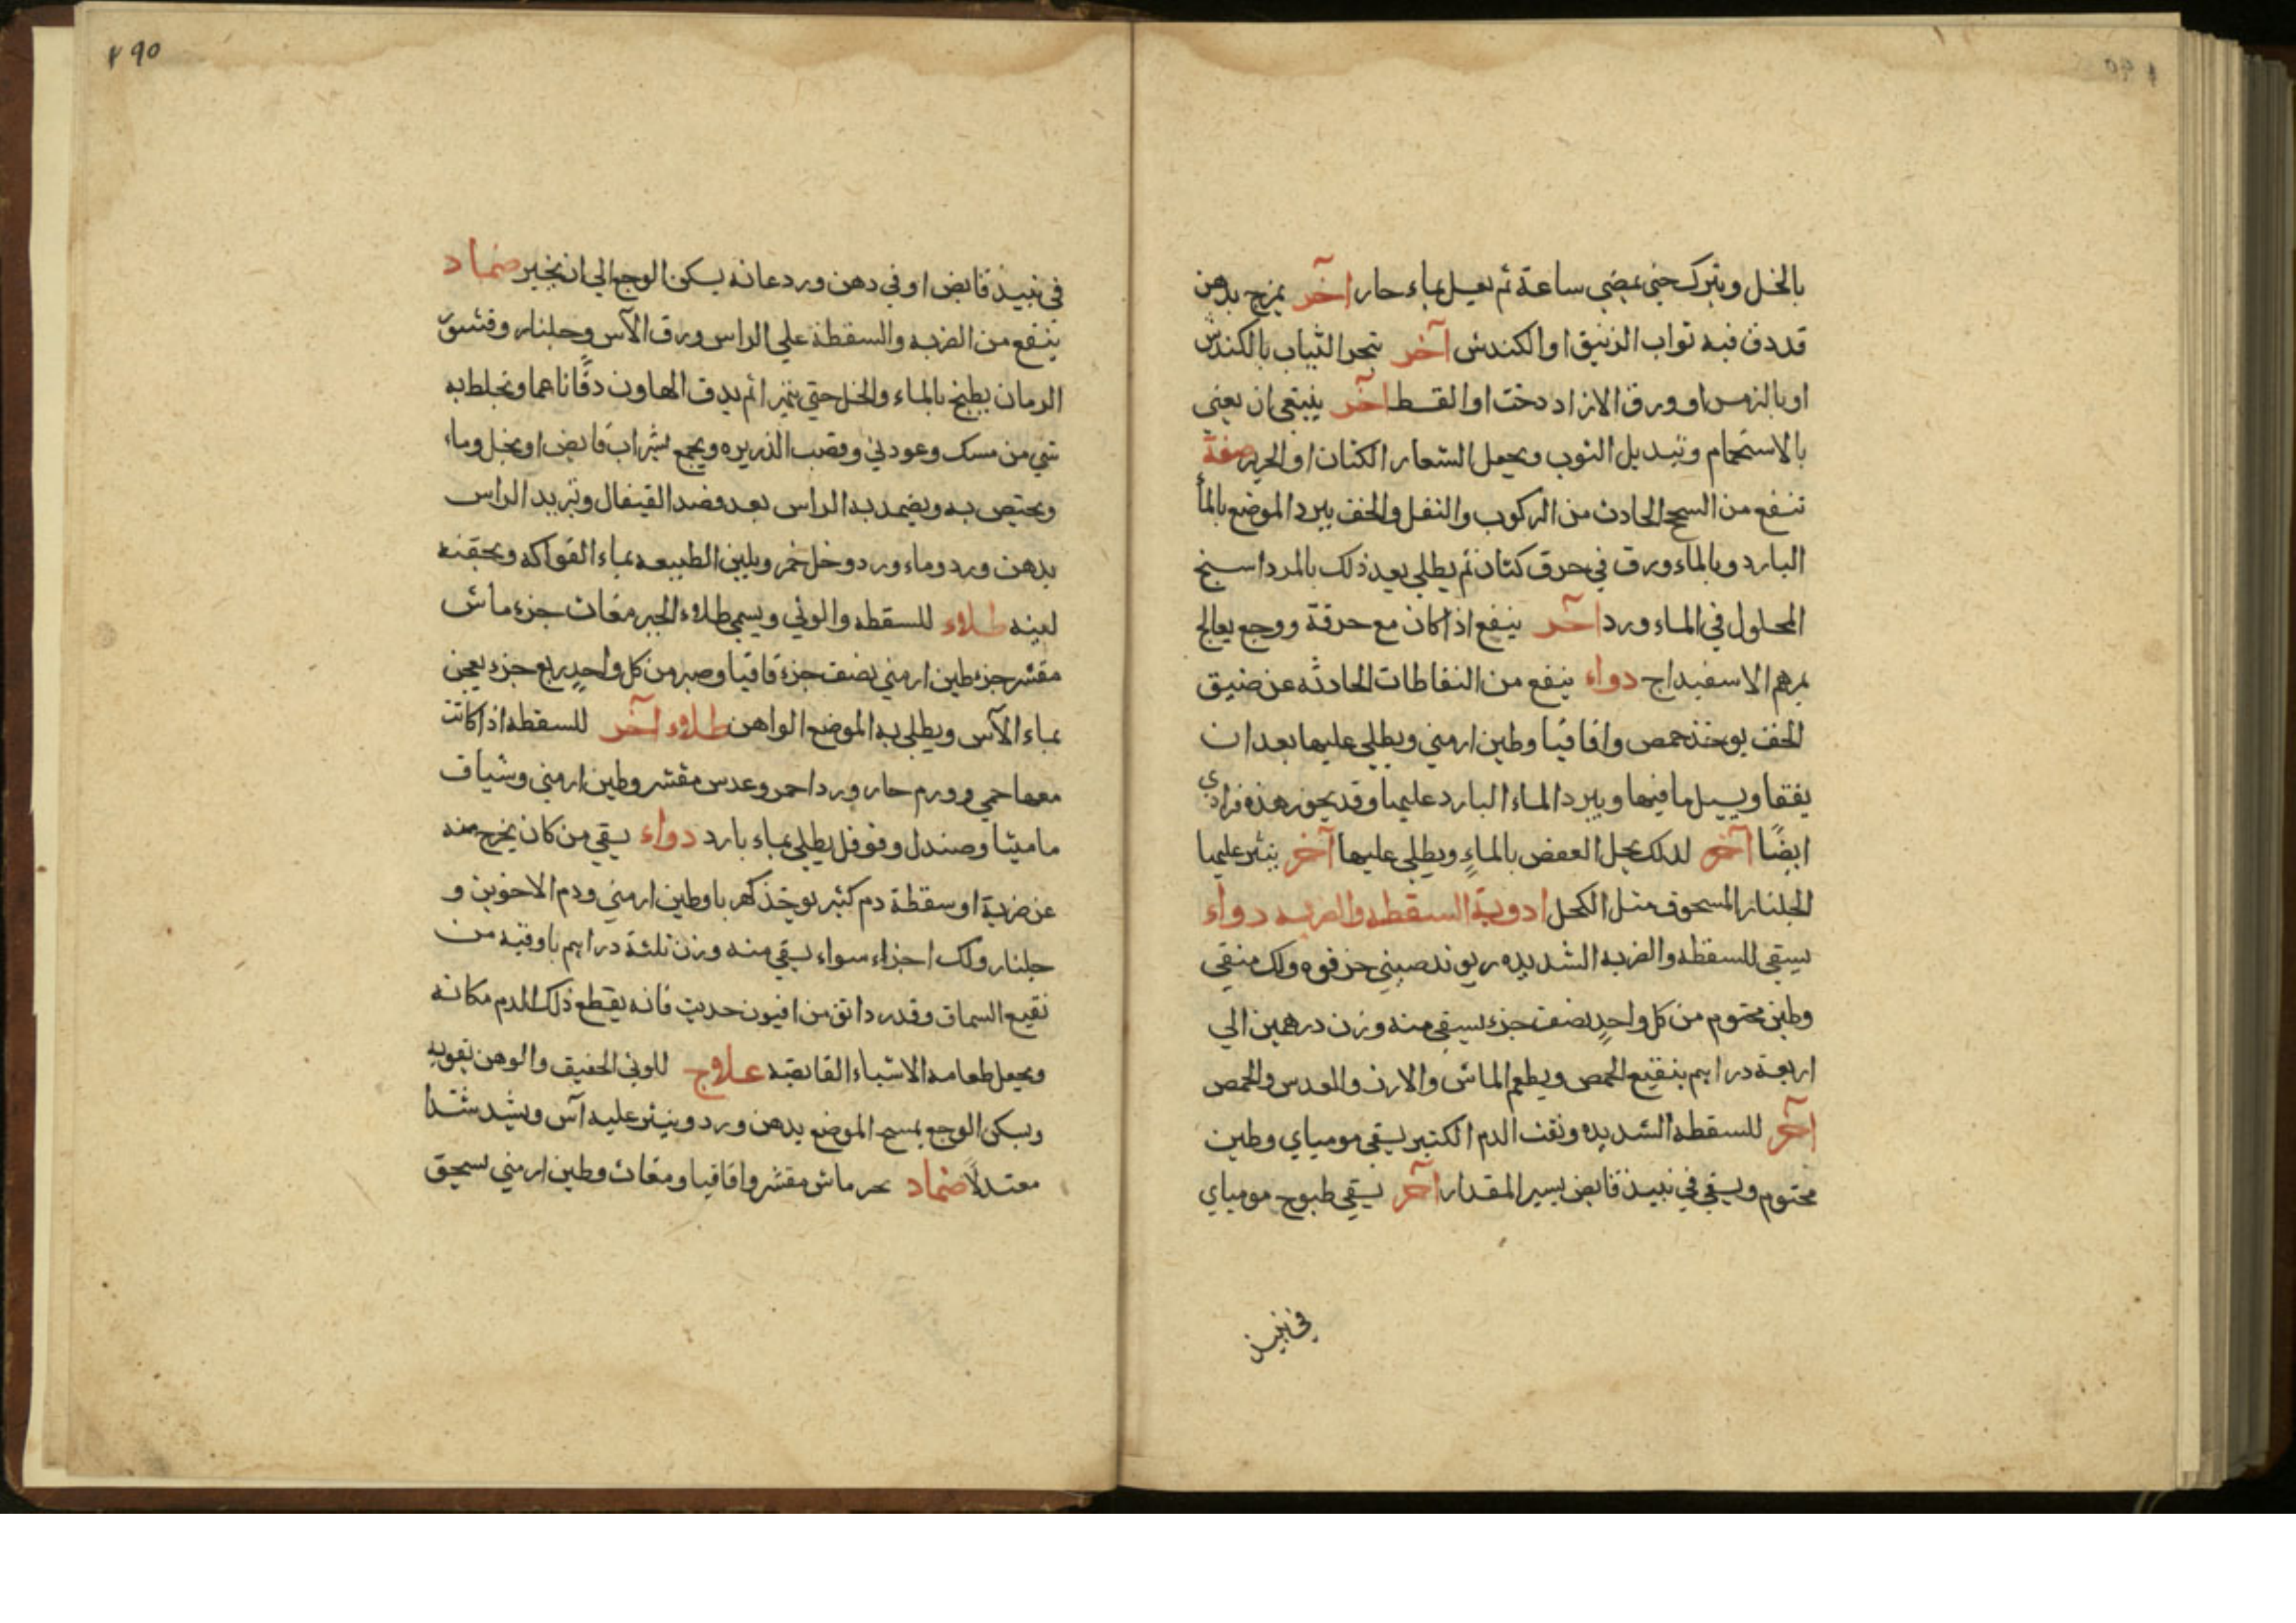 بالخل ويترك حتى يمضي ساعة ثم يغسل بماء حار آخر يمزج بدهن
قد دق فيه تواب الزنبق او الكندش آخر تبخر الثياب بالكندش
او بالزمس او ورق الازاد دخت او القسط آخر ينبغي ان يعني
بالاستحمام وتبديل الثوب ويجعل الشعار الكتان او الحرير صفة
تنفع من السحج الحادث من الركوب والنعل والخف يبرد الموضع بالماء
البارد وبالماء ورق في خرق كتان ثم يطلي بعد ذلك بالمرداسنج
المحلول في الماء ورد آخر ينفع اذا كان مع حرقة ووجع يعالج
بمرهم الاسفيداج دواء ينفع من النفاطات الحادثه عن ضيق
الخف يوخذ حمص واقاقيا وطين ارمني ويطلي عليها بعد ان
يفقا ويسيل ما فيها ويبرد الماء البارد عليها وقد يحوز هذه فرادي
ايضًا آخر لذلك يحل العفص بالماءِ ويطلي عليها آخر ينثر عليها
الجلنار المسحوق مثل الكحل ادوية السقطه والضربه دواء
يسقى للسقطه والضربه الشديده ريوند صيني جز فوه ولك منقي
وطين مختوم من كل واحدٍ نصف جزء يسقى منه وزن درهمين الي
اربعة دراهم بنقيع الحمص ويطعم الماش والارز والعدس والحمص
آخر للسقطه الشديده ونفث الدم الكثير يسقي مومياي وطين
مختوم ويسقي في نبيذ قابض يسير المقدار آخر يسقي طبوخ موميای
في نبيذ
٢٩٥
في نبيذ قابض او في دهن ورد فانه يسكن الوجع الي ان يجبر ضماد
ينفع من الضربه والسقطة علي الراس ورق الآس وجلنار وقشور
الرمان يطبخ بالماء والخل حتي يتهرا ثم يدق الهاون دقًا ناعما ويخلط به
شي من مسك وعود ني وقصب الذريره ويجمع بشراب قابض او بخل وماء
ويحتبص به ويضمد به الراس بعد فصد القيفال وتبريد الراس
بدهن ورد وماء ورد وخل خمر ويلين الطبيعه بماء الفواكه وبحقنه
لينه طلاء للسقطه والوثي ويسمي طلاء الجبر مغاث جزء ماش
مقشر جزء طين ارمني نصف جزء قاقيا وصبر من كل واحدٍ ربع جزء يعجن
بماء الآس ويطلي به الموضع الواهن طلاء آخر للسقطه اذا كانت
معها حمي وورم حار ورد احمر وعدس مقشر وطين ارمني وشياف
ماميثا وصندل وفوفل يطلي بماء بارد دواء يسقي من كان يخرج منه
عن ضربة او سقطة دم كثير يوخذ كهربا وطين ارمني ودم الاخوين و
جلنار ولك اجزاء سواء يسقي منه وزن ثلثة دراهم باوقيه من
نقيع السماق وقدر دانق من افيون حديث فانه يقطع ذلك الدم مكانه
ويجعل طعامه الاشياء القابضه علاج للوثي الخفيف والوهن بقويه
ويسكن الوجع يمسح الموضع بدهن ورد وينثر عليه آس ويشد شدًا
معتدلًا ضماد بحر ماش مقشر واقاقيا ومغاث وطين ارمني يسحق